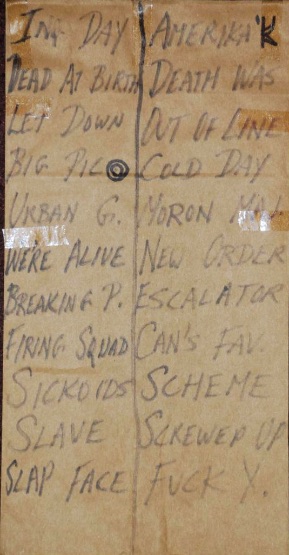 INT DAY
DEAD AT BIRTH
LET DOWN
BIG PIC
URBAN G.
WE'RE ALIVE
BREAKING P.
FIRING SQUAD
SICKOIDS
SLAVE
SLAP FACE
AMERIKA'K
DEATH WAS
OUT OF LINE
COLD DAY
MORON MAJ.
NEW ORDER
ESCALATOR
CAN'S FAV.
SCHEME
SCREWED UP
FUCK Y.